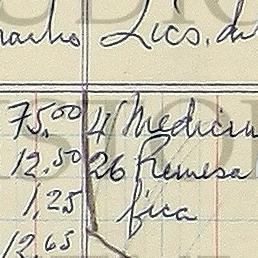 Lics. de
75.00 4 Medicin
12.50 26 Remesa
1,25 fica
12.65